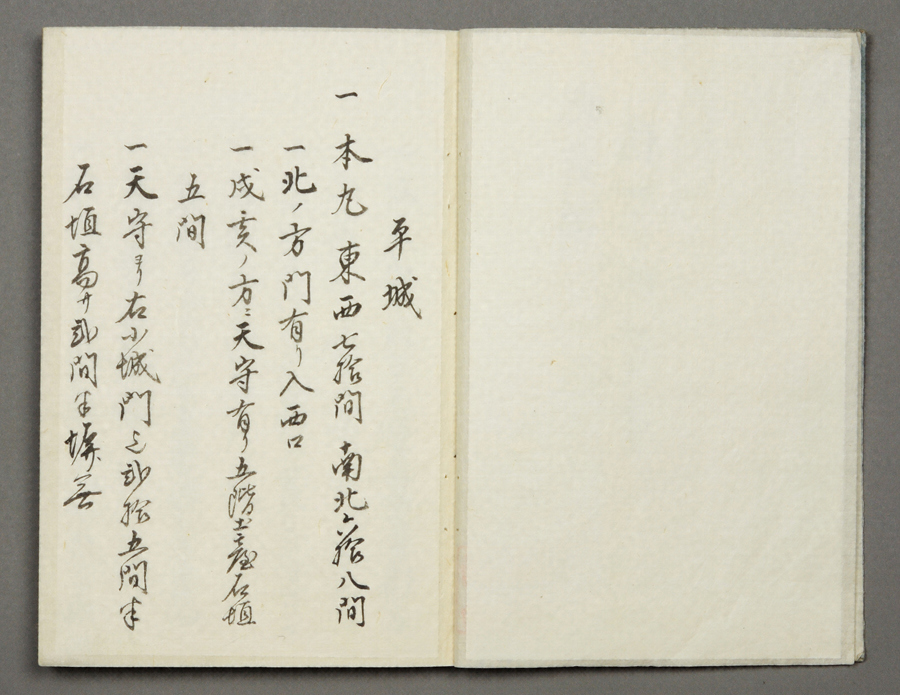 平城
一 本丸 東西七拾間 南北六拾八間
一北ノ方門有リ入西口
一戌亥ノ方ニ天守有リ五階土臺石垣
五間
一天守ヨリ右小城門迄貳拾五間半
石垣高サ貳間半塀無